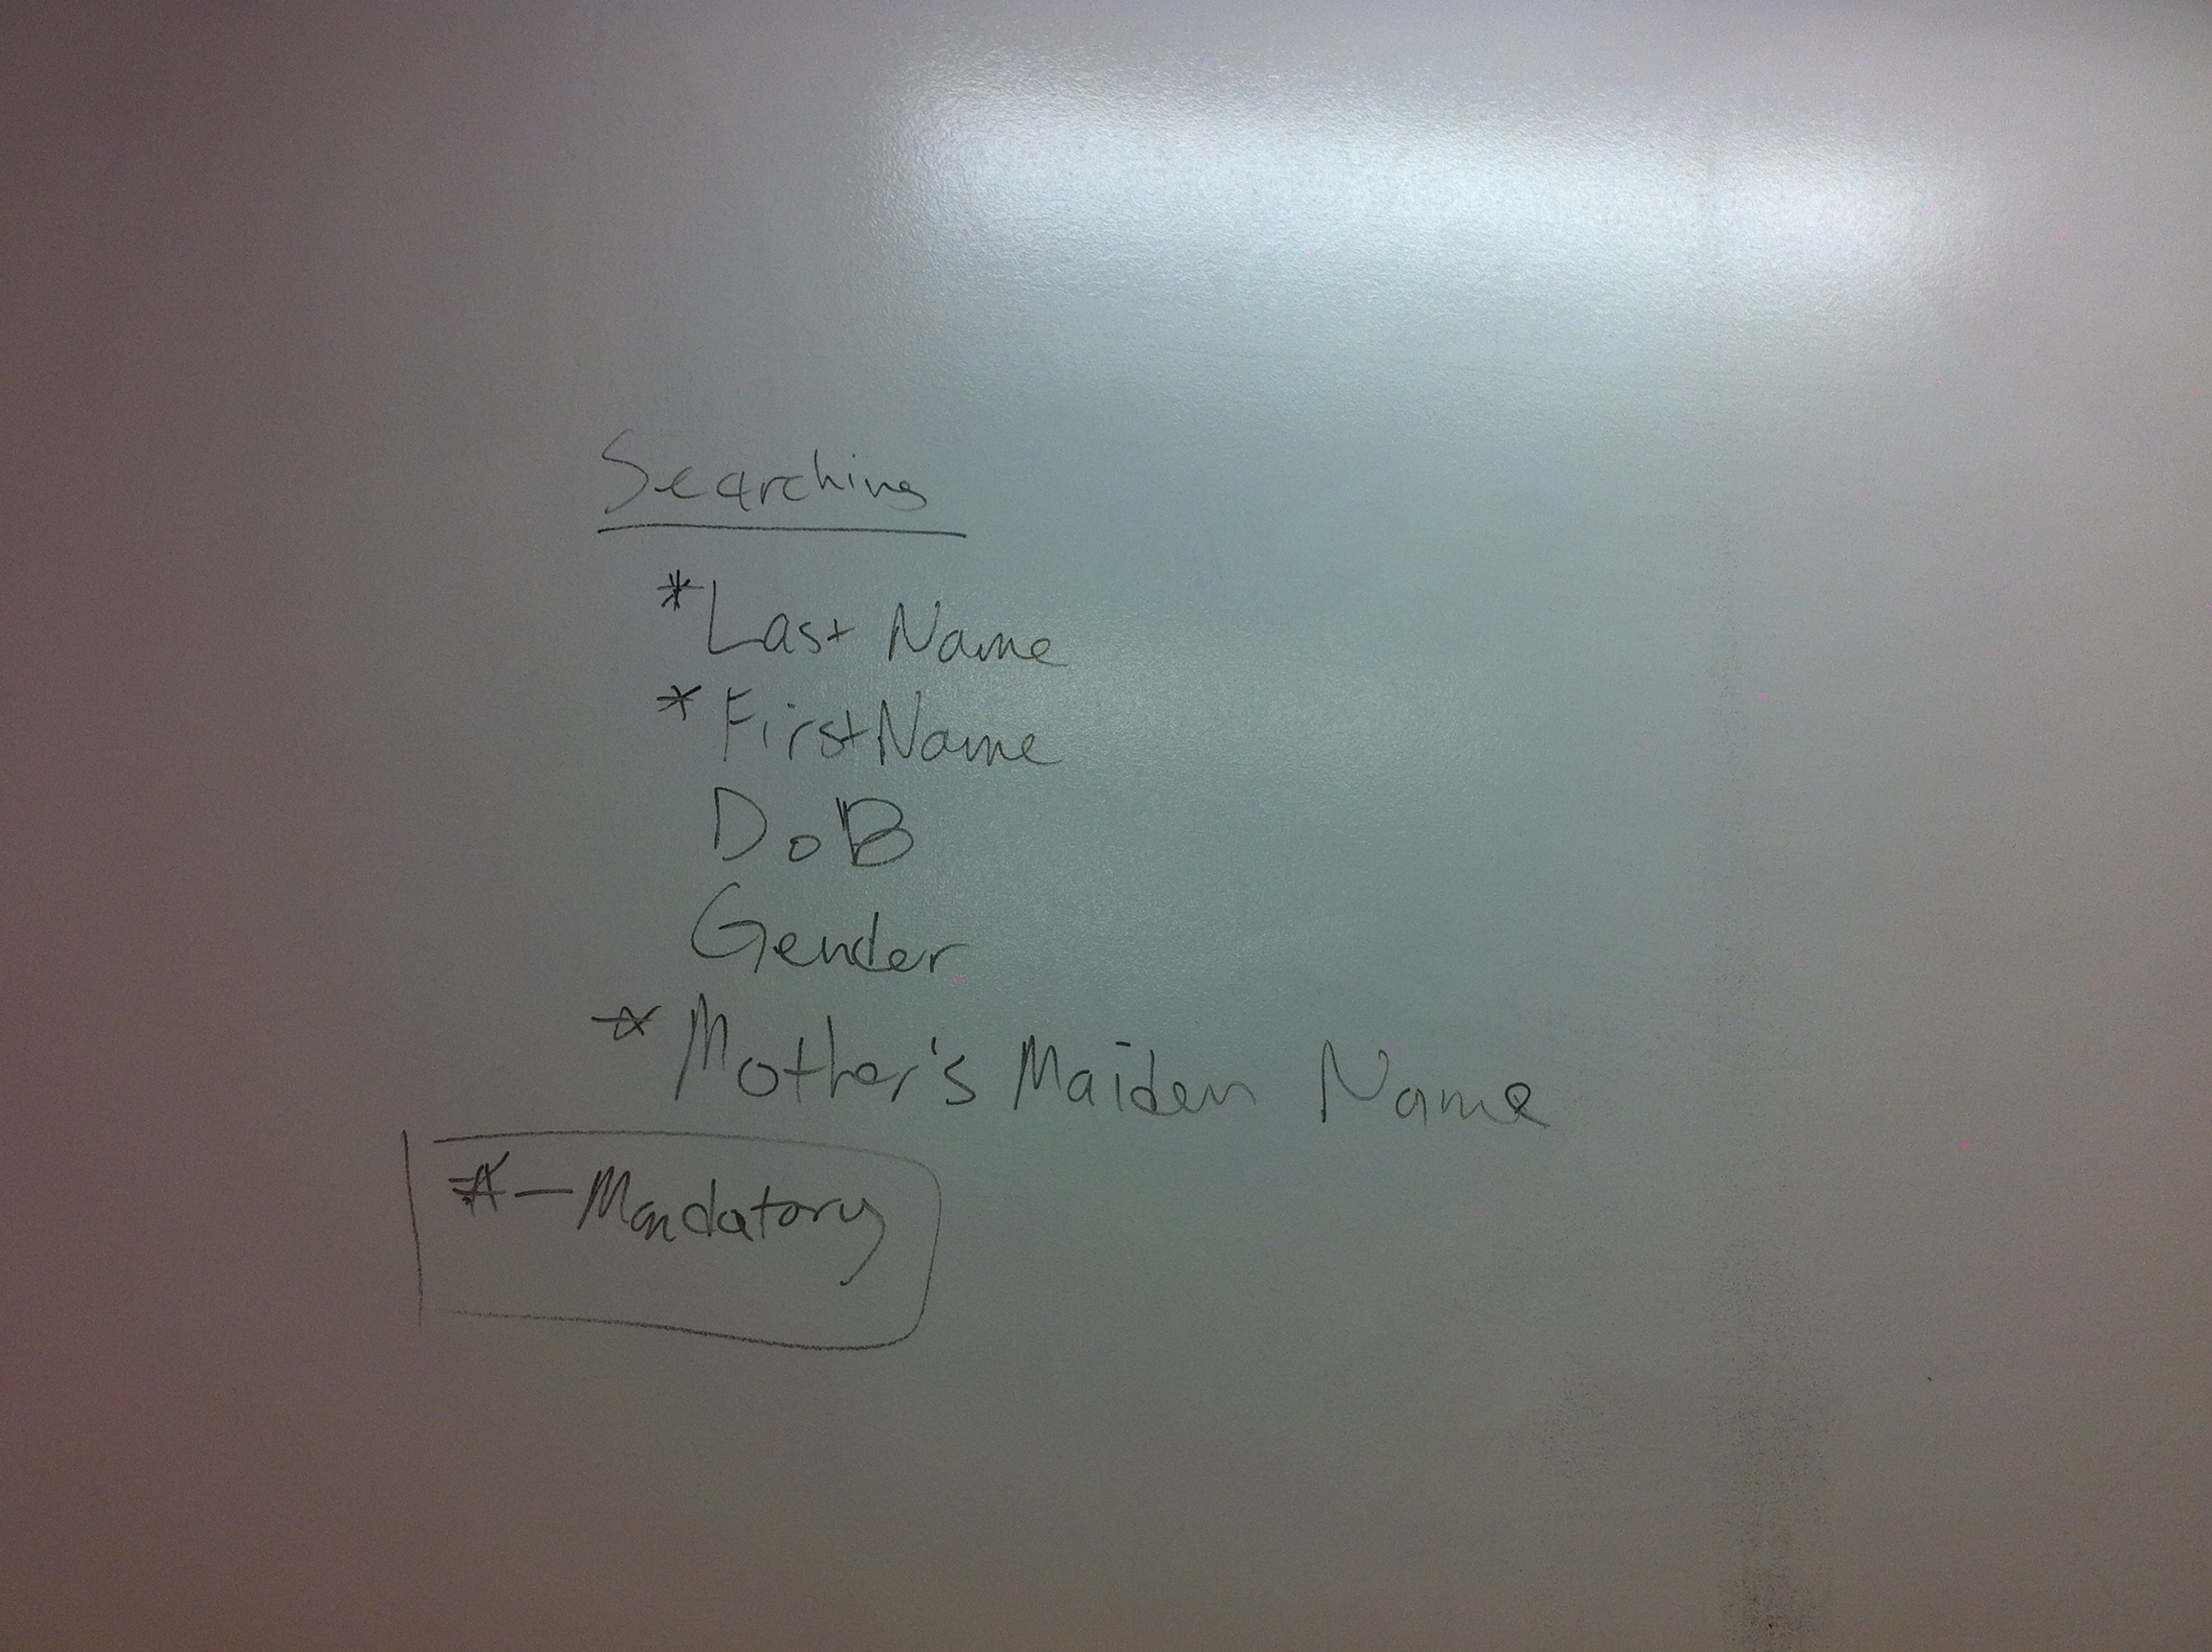 Searching
*Last Name
*First Name
DoB
Gender
*Mother's Maiden Name
*-Mandatory